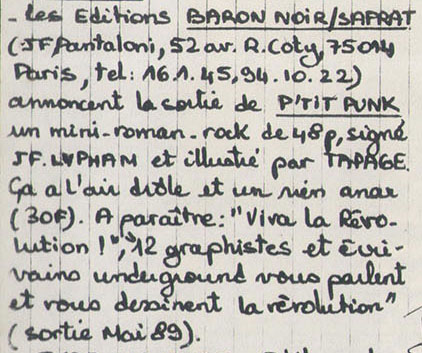 - les Editions BARON NOIR/SAFRAT
(JF Pantaloni, 52 av. R. Coty, 75014
Paris, tel: 16.1.45.94.10.22)
annoncent la sortie de P'TIT PUNK
un mini-roman-rock de 48p, signé
JF. LYPHAM et illustré par TAPAGE.
Ça a l'air drôle et un rien anar
(30F). A paraître: "Viva la Révo-
lution!", "12 graphistes et écri-
vains underground vous parlent
et vous dessinent la révolution"
(sortie Mai 89).